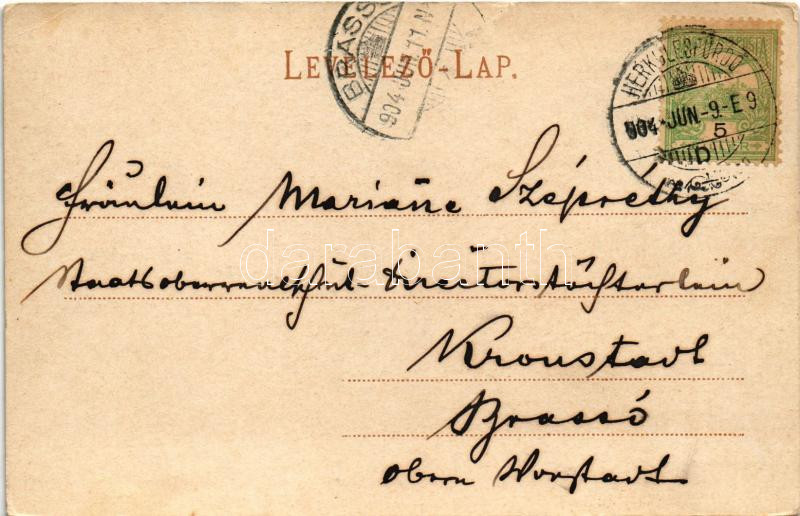 BRASSÓ
904 JUN. 11. N
LEVELEZŐ-LAP.
HERKULESFÜRDŐ
904 JUN-9-E 9
5
D
Fräulein Marianne Szépréthy
Staatsoberrealschul-Directorstöchterlein
Kronstadt
Brassó
obere Vorstadt
darabanth